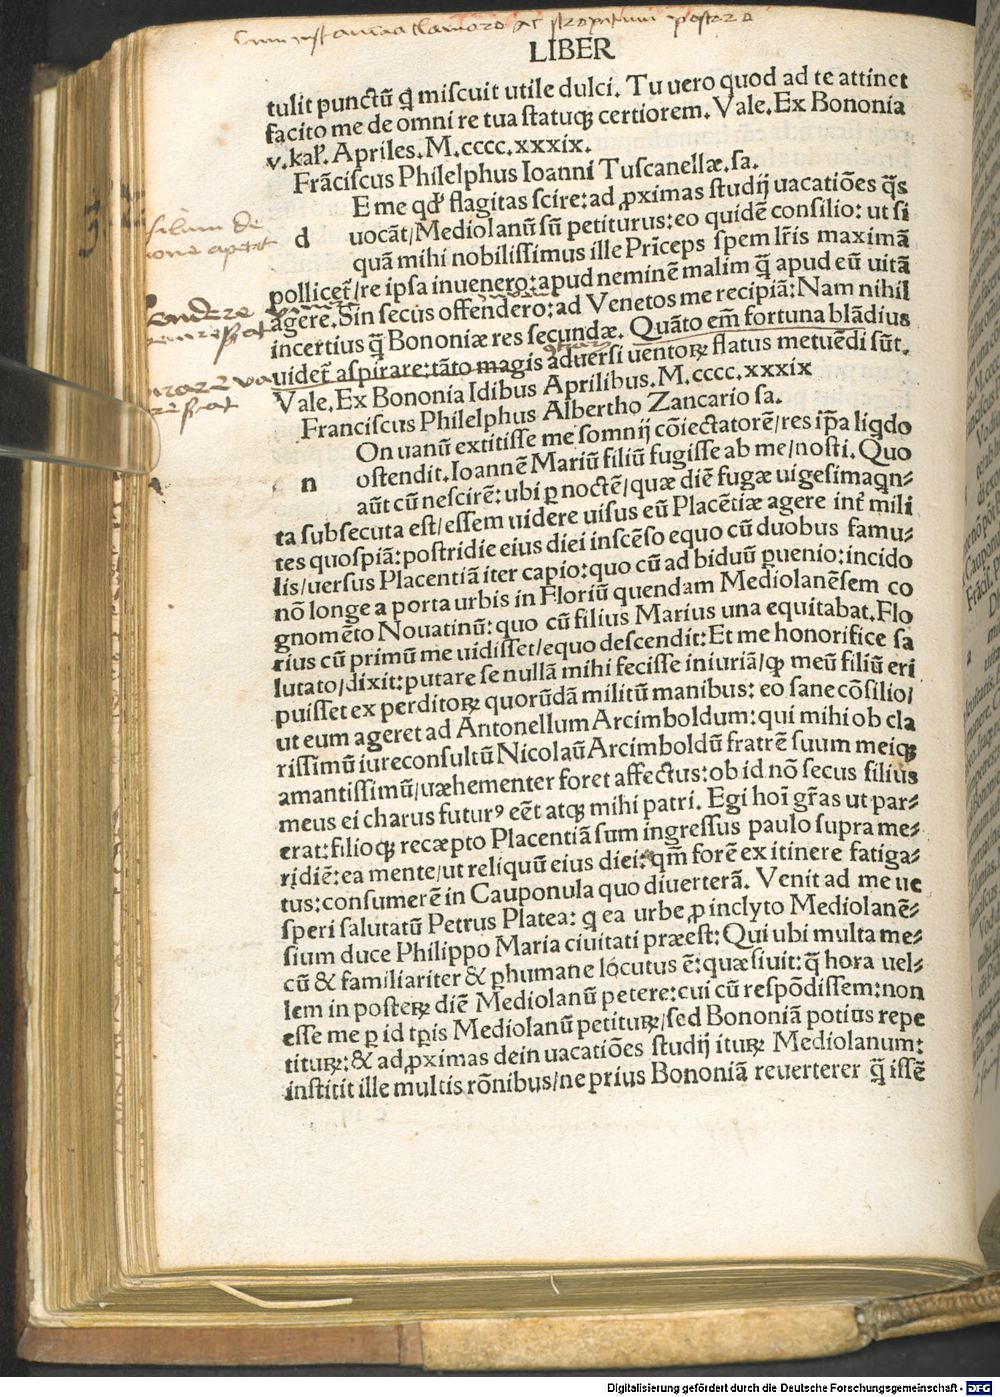 LIBER
tulit punctū q̄ miscuit utile dulci. Tu uero quod ad te attinet
facito me de omni re tua statuqꝫ certiorem. Vale. Ex Bononia
v. kał. Apriles. M. cccc. xxxix.
Frāciscus Philelphus Ioanni Tuscanellæ. sa.
E me qđ flagitas scire: ad ꝓximas studij uacatiōes q̄s
d uocāt/Mediolanū sū petiturus: eo quidē consilio: ut si
quā mihi nobilissimus ille Prīceps spem lr̄is maximā
pollicet̄/re ipsa inuenero: apud neminē malim q̄ apud eū uitā
agere. Sin secus offendero: ad Venetos me recipiā: Nam nihil
incertius q̄ Bononiæ res secundæ. Quāto em̄ fortuna blādius
uidet̄ aspirare: tāto magis aduersi uentoꝝ flatus metuēdi sūt.
Vale. Ex Bononia Idibus Aprilibus. M. cccc. xxxix
Franciscus Philelphus Albertho Zancario sa.
On uanū extitisse me somnij cōiectatorē/res ip̄a liqdo
n ostendit. Ioannē Mariū filiū fugisse ab me/nosti. Quo
aūt cū nescirē: ubi ꝑ noctē/quæ diē fugæ uigesimaqn⸗
ta subsecuta est/essem uidere uisus eū Placētiæ agere int̄ mili
tes quospiā: postridie eius diei inscēso equo cū duobus famu⸗
lis/uersus Placentiā iter capio: quo cū ad biduū ꝑuenio: incido
nō longe a porta urbis in Floriū quendam Mediolanēsem co
gnomēto Nouatinū: quo cū filius Marius una equitabat. Flo
rius cū primū me uidisset/equo descendit: Et me honorifice sa
lutato/dixit: putare se nullā mihi fecisse iniuriā/qꝫ meū filiū eri
puisset ex perditoꝝ quorūdā militū manibus: eo sane cōsilio/
ut eum ageret ad Antonellum Arcimboldum: qui mihi ob cla
rissimū iureconsultū Nicolaū Arcimboldū fratrē suum meiqꝫ
amantissimū/uæhementer foret affectus: ob id nō secus filius
meus ei charus futurꝰ eēt atqꝫ mihi patri. Egi hoī gr̄as ut par⸗
erat: filioqꝫ recæpto Placentiā sum ingressus paulo supra me⸗
ridiē: ea mente/ut reliquū eius diei: qm̄ forē ex itinere fatiga⸗
tus: consumerē in Cauponula quo diuerterā. Venit ad me ue
speri salutatū Petrus Platea: q ea urbe ꝓ inclyto Mediolanē⸗
sium duce Philippo Maria ciuitati præest: Qui ubi multa me⸗
cū & familiariter & ꝑhumane locutus ē: quæsiuit: q̄ hora uel⸗
lem in posteꝝ diē Mediolanū petere: cui cū respōdissem: non
esse me ꝑ id tp̄is Mediolanū petituꝝ/sed Bononiā potius repe
tituꝝ: & ad ꝓximas dein uacatiōes studij ituꝝ Mediolanum:
institit ille multis rōnibus/ne prius Bononiā reuerterer q̄ issē
Digitalisierung gefördert durch die Deutsche Forschungsgemeinschaft - DFG